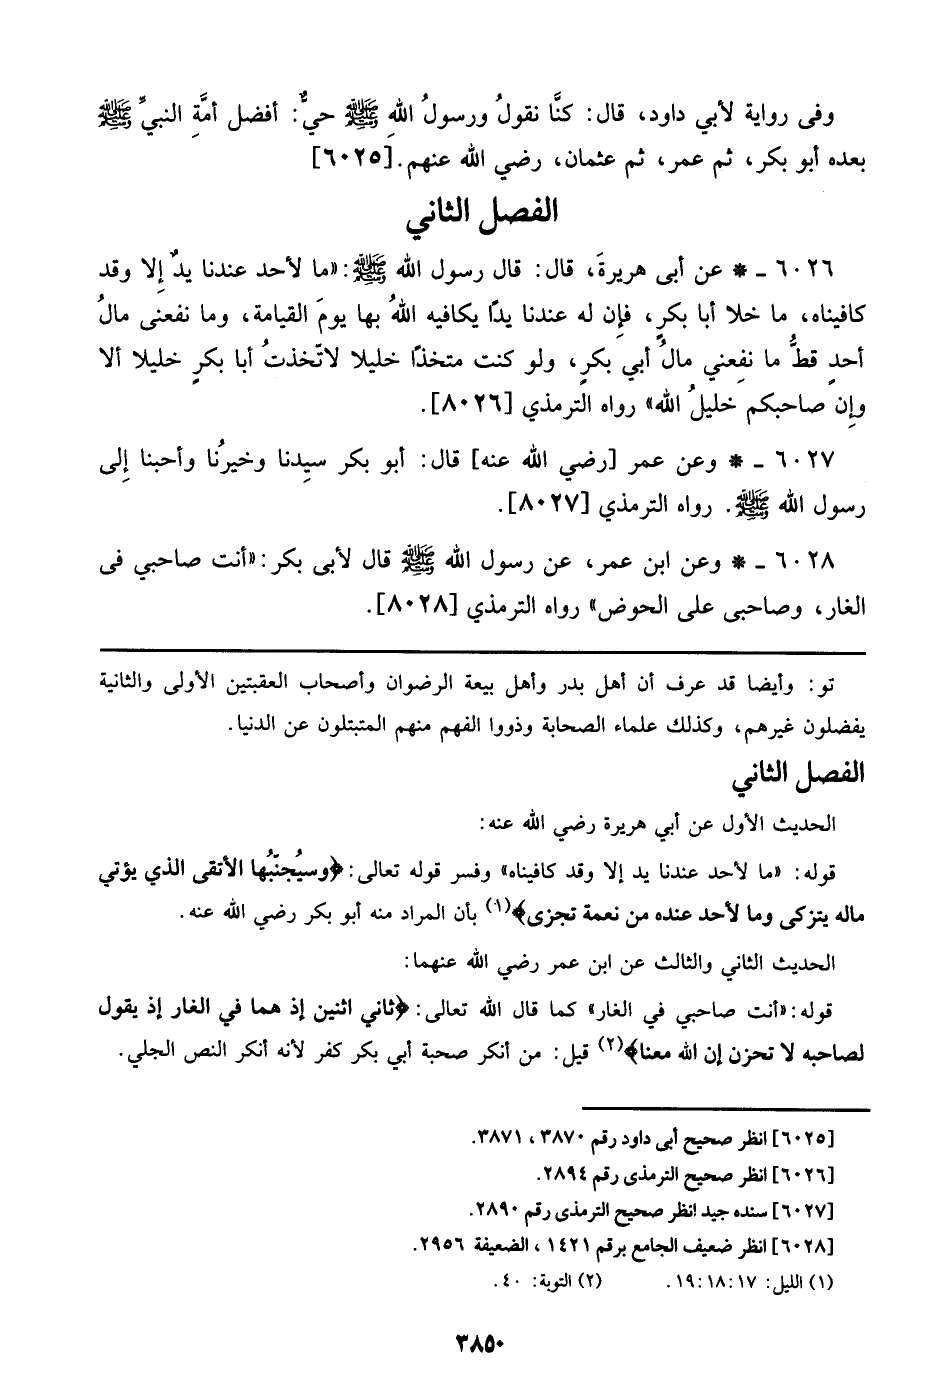 وفى رواية لأبي داود، قال: كنَّا نقولُ ورسولُ اللهِ ﷺ حيٌّ: أفضل أمَّةِ النبيِّ ﷺ
بعده أبو بكر، ثم عمر، ثم عثمان، رضي الله عنهم.[٦٠٢٥]
الفصل الثاني
٦٠٢٦ ـ * عن أبى هريرةَ، قال: قال رسول الله ﷺ:«ما لأحد عندنا يدٌ إِلا وقد
كافيناه، ما خلا أبا بكرٍ، فإِن له عندنا يدًا يكافيه اللهُ بها يومَ القيامة، وما نفعنى مالُ
أحدٍ قطُّ ما نفِعني مالُ أبي بكرٍ، ولو كنت متخذًا خليلا لاتّخذتُ أبا بكرٍ خليلا ألا
وإِن صاحبكم خليلُ الله» رواه الترمذي [٨٠٢٦].
٦٠٢٧ ـ * وعن عمر [رضي الله عنه] قال: أبو بكر سيِدنا وخيرُنا وأحبنا إِلى
رسول الله ﷺ. رواه الترمذي [٨٠٢٧].
٦٠٢٨ ـ * وعن ابن عمر، عن رسول الله ﷺ قال لأبى بكر:«أنت صاحبي فى
الغار، وصاحبى على الحوض» رواه الترمذي [٨٠٢٨].
تو: وأيضا قد عرف أن أهل بدر وأهل بيعة الرضوان وأصحاب العقبتين الأولى والثانية
يفضلون غيرهم، وكذلك علماء الصحابة وذووا الفهم منهم المتبتلون عن الدنيا.
الفصل الثاني
الحديث الأول عن أبي هريرة رضي الله عنه:
قوله: «ما لأحد عندنا يد إلا وقد كافيناه» وفسر قوله تعالى:﴿وسيُجنّبُها الأتقى الذي يؤتي
ماله يتزكى وما لأحد عنده من نعمة تجزى﴾(١) بأن المراد منه أبو بكر رضي الله عنه.
الحديث الثاني والثالث عن ابن عمر رضي الله عنهما:
قوله:«أنت صاحبي في الغار» كما قال الله تعالى: ﴿ثاني اثنين إذ هما في الغار إذ يقول
لصاحبه لا تحزن إن الله معنا﴾(٢) قيل: من أنكر صحبة أبي بكر كفر لأنه أنكر النص الجلي.
[٦٠٢٥] انظر صحيح أبى داود رقم ٣٨٧٠ ، ٣٨٧١.
[٦٠٢٦] انظر صحيح الترمذى رقم ٢٨٩٤.
[٦٠٢٧] سنده جيد انظر صحيح الترمذى رقم ٢٨٩٠.
[٦٠٢٨] انظر ضعيف الجامع برقم ١٤٢١ ، الضعيفة ٢٩٥٦.
(١) الليل: ١٧:١٨:١٩. (٢) التوبة: ٤٠.
٣٨٥٠